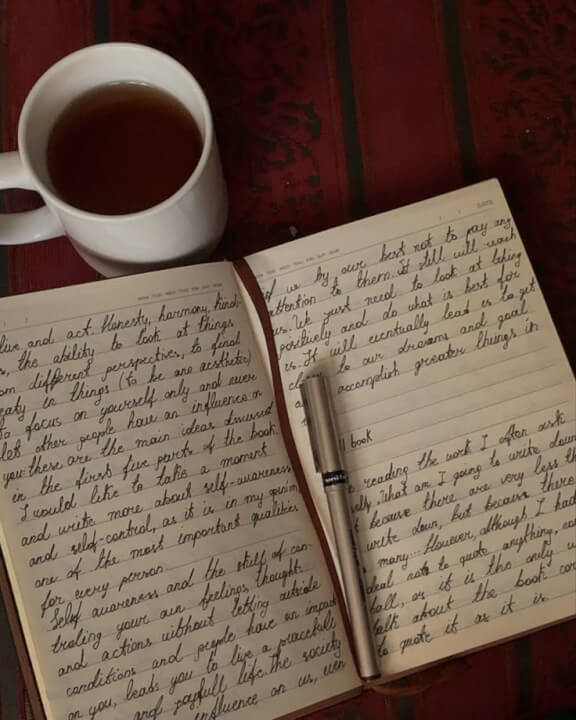 live and act. Honesty, harmony, kind-
s, the ability to look at things
om different perspectives, to find
eaty in things (to be one aesthetic)
to focus on yourself only and never
let other people have an influence on
you: these are the main ideas discussed
in the first five parts of the book.
I would like to take a moment
and write more about self-awareness
and self-control, as it is in my opinion
one of the most important qualities
for every person.
Self awareness and the skill of con-
troling your own feelings, thoughts
and actions without letting outside
conditions and people have an impact
on you, leads you to live a peacefull
and joyfull life. The society
influence on us, even
DATE
if we by our best not to pay any
attention to them. It still will reach
us. We just need to look at taking
positively and do what is best for
us. It will eventually lead us to get
to our dreams and goal
accomplish greater things in
ll book
reading the work I often ask
self, "What am I going to write down
because there are very less th
write down, but because there
many... However, although I had
deal not to quote anything, ea
all, as it is the only w
alk about the book cor
to quote it as it is.